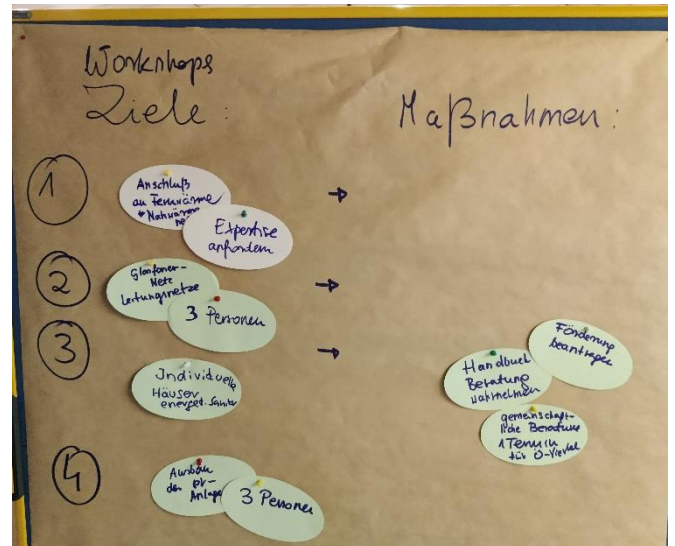 Workshops
Ziele:
Maßnahmen:
1
Anschluß
an Fernwärme
Expertise
anfordern
2
Glasfaser-
Netz
Leitungsnetze
3 Personen
3
Individuelle
Häuser
energet. Sanier
Handbuch
Beratung
wahrnehmen
Förderung
beantragen
gemeinschaft-
liche Beratung
1 Termin
für Ö-Viertel
4
Ausbau
der PV-
Anlage
3 Personen